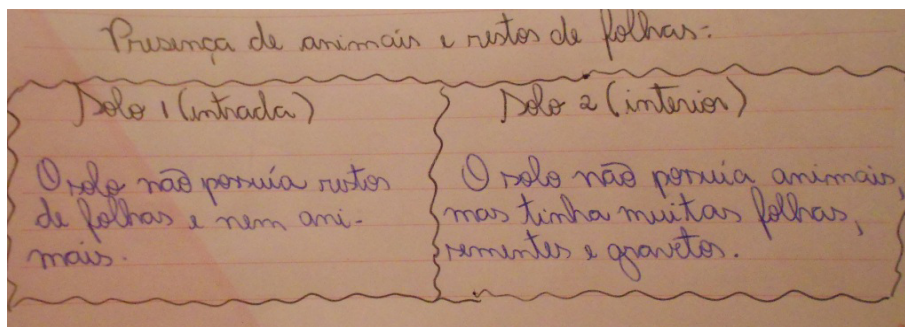 Presença de animais e restos de folhas:
Solo 1 (entrada)
O solo não possuía restos
de folhas e nem ani-
mais.
Solo 2 (interior)
O solo não possuia animais,
mas tinha muitas folhas,
sementes e gravetos.